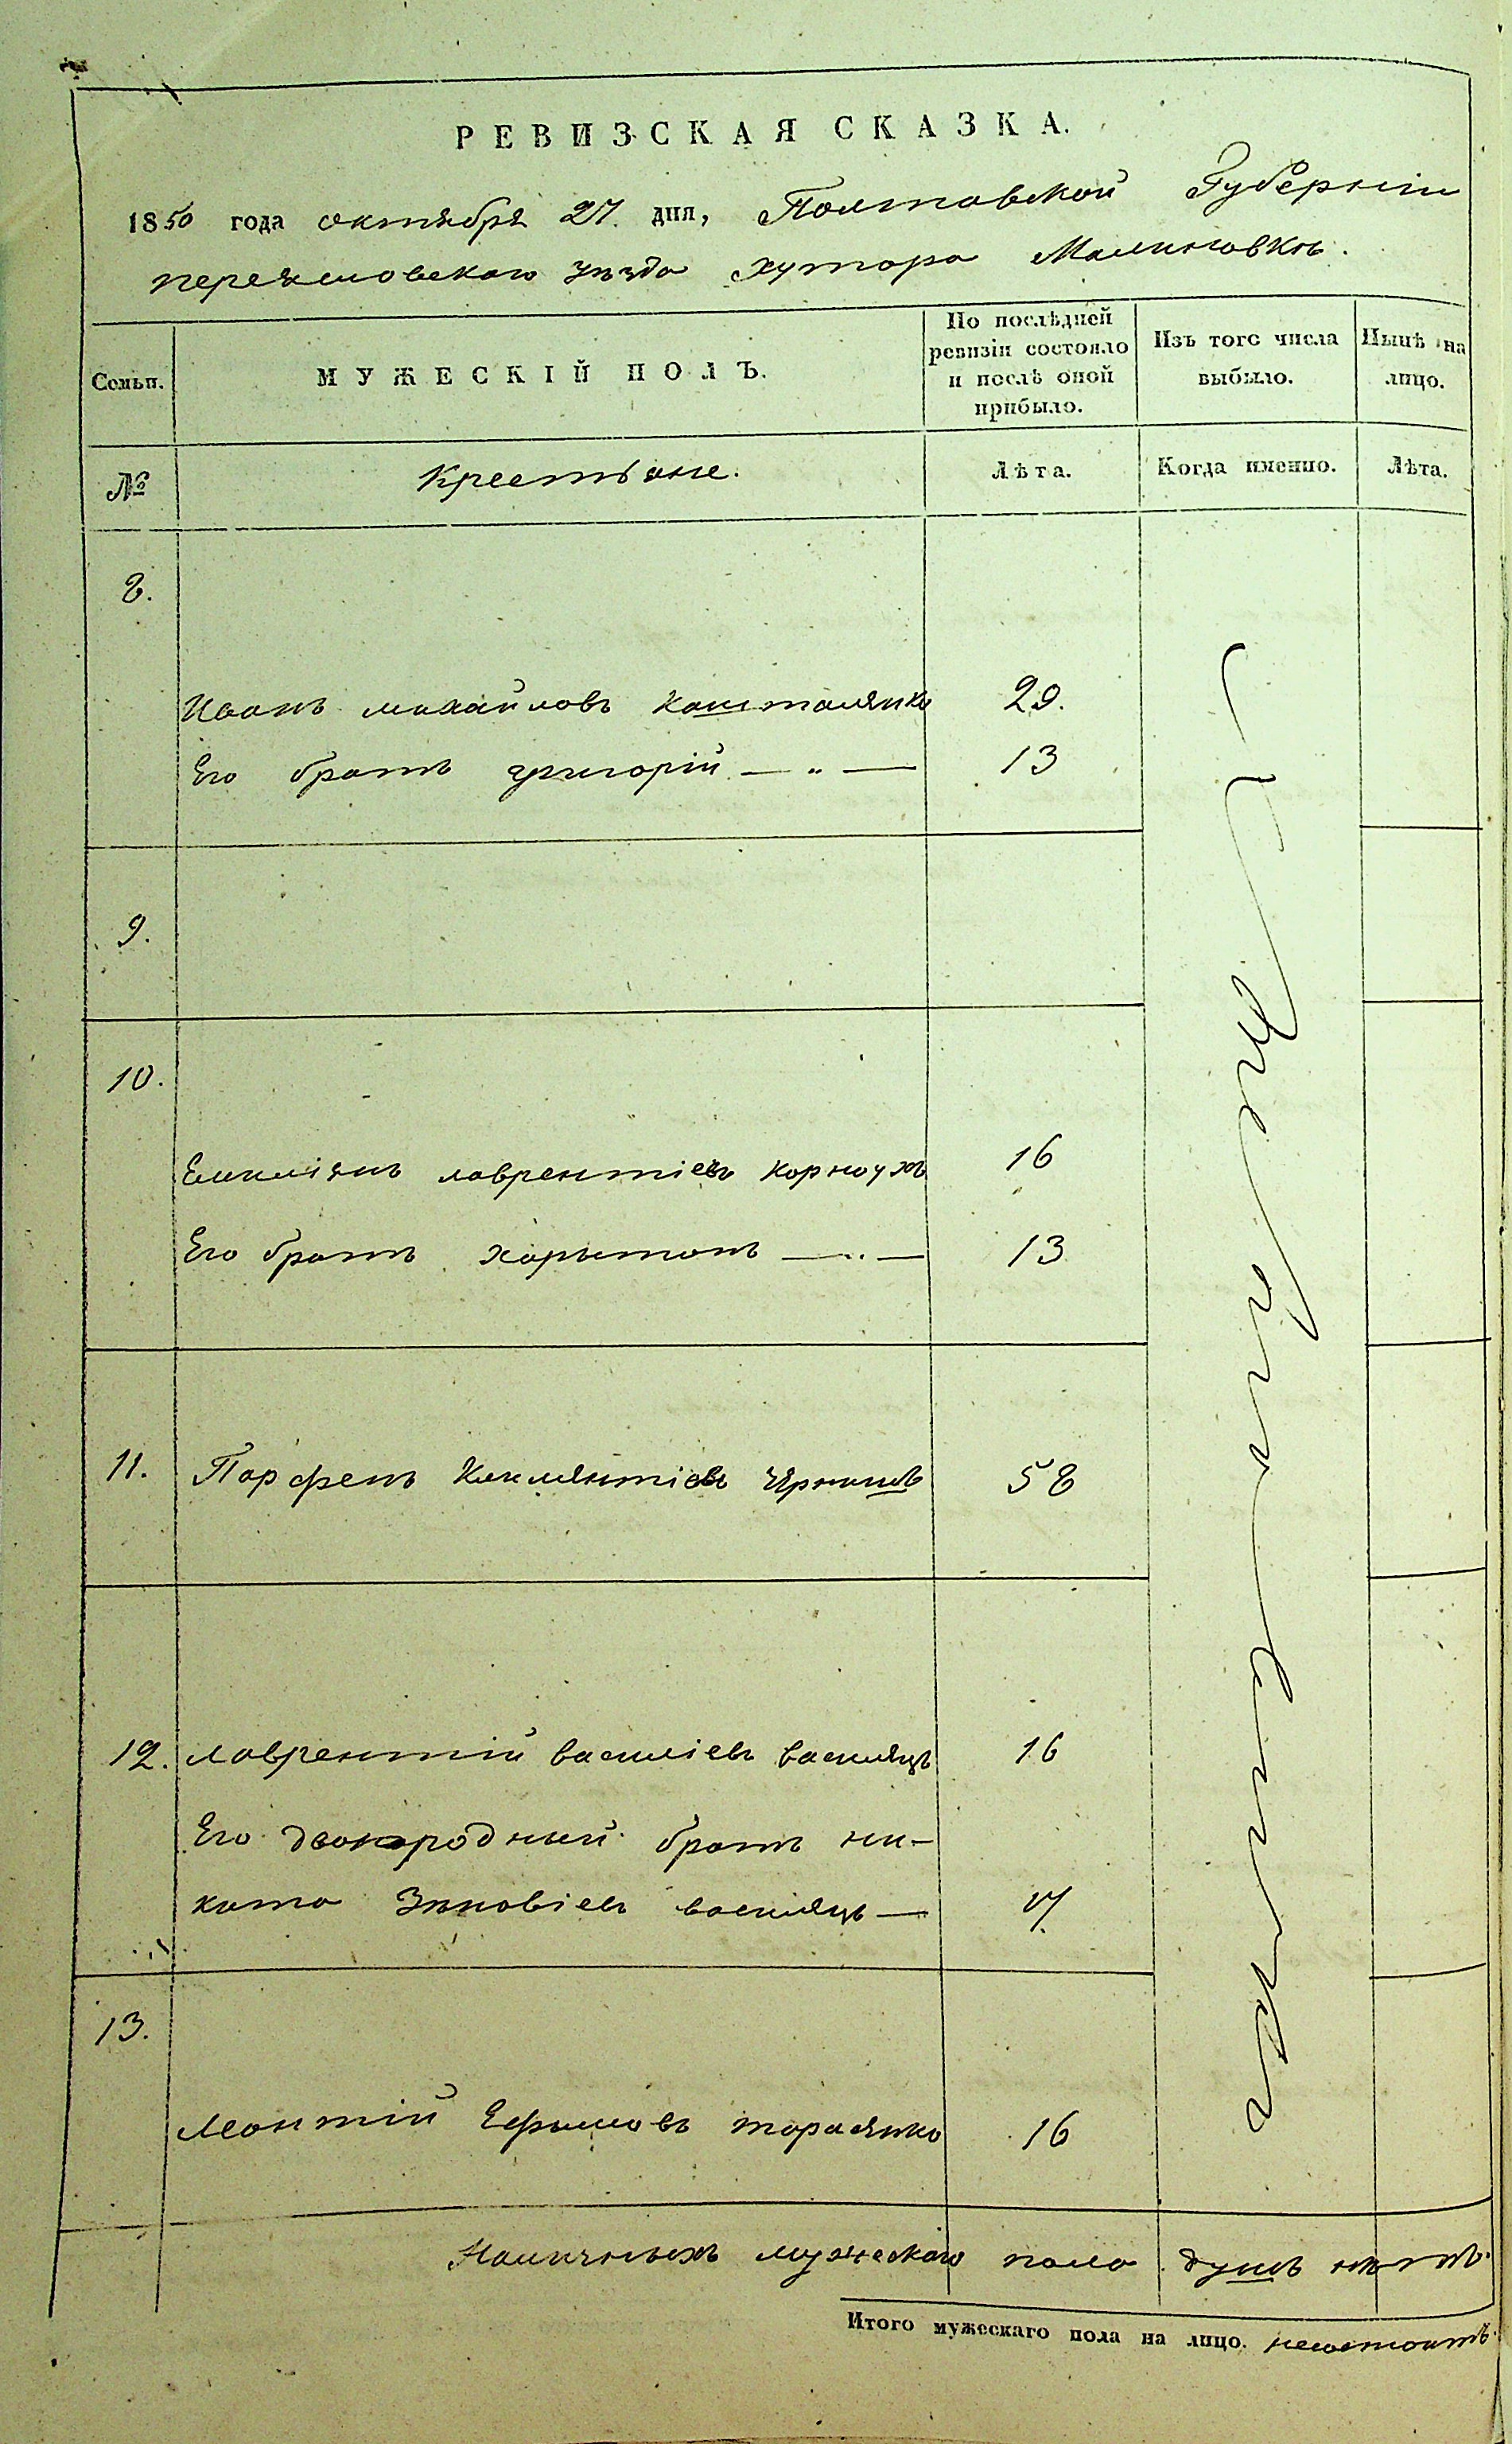 РЕВИЗСКАЯ СКАЗКА.
1850 года октября 27. дня, Полтавской Губерніи
переяловскаго уѣзда хутора Малиновкѣ.
Семьи.
МУЖЕСКІЙ ПОЛЪ.
По послѣдней ревизіи состояло и послѣ оной прибыло.
Изъ того числа выбыло.
Нынѣ на лицо.
№
Крестьяне.
Лѣта.
Когда именно.
Лѣта.
8.
Иванъ михайловъ 29.
Его братъ григорій — „ — 13
9.
10.
Емиліянъ лаврентіевъ корноухъ 16
Его братъ харытонъ — „ — 13
11. Парфенъ Климентіевъ 58
12. лаврентій василіевъ василяцъ 16
Его двоюродный братъ ни-
кита Зѣновіевъ василяцъ —
13.
леонтій Ефымовъ тарасянко 16
Наличныхъ мужескаго пола душъ нѣтъ.
Итого мужескаго пола на лицо. несостоитъ.